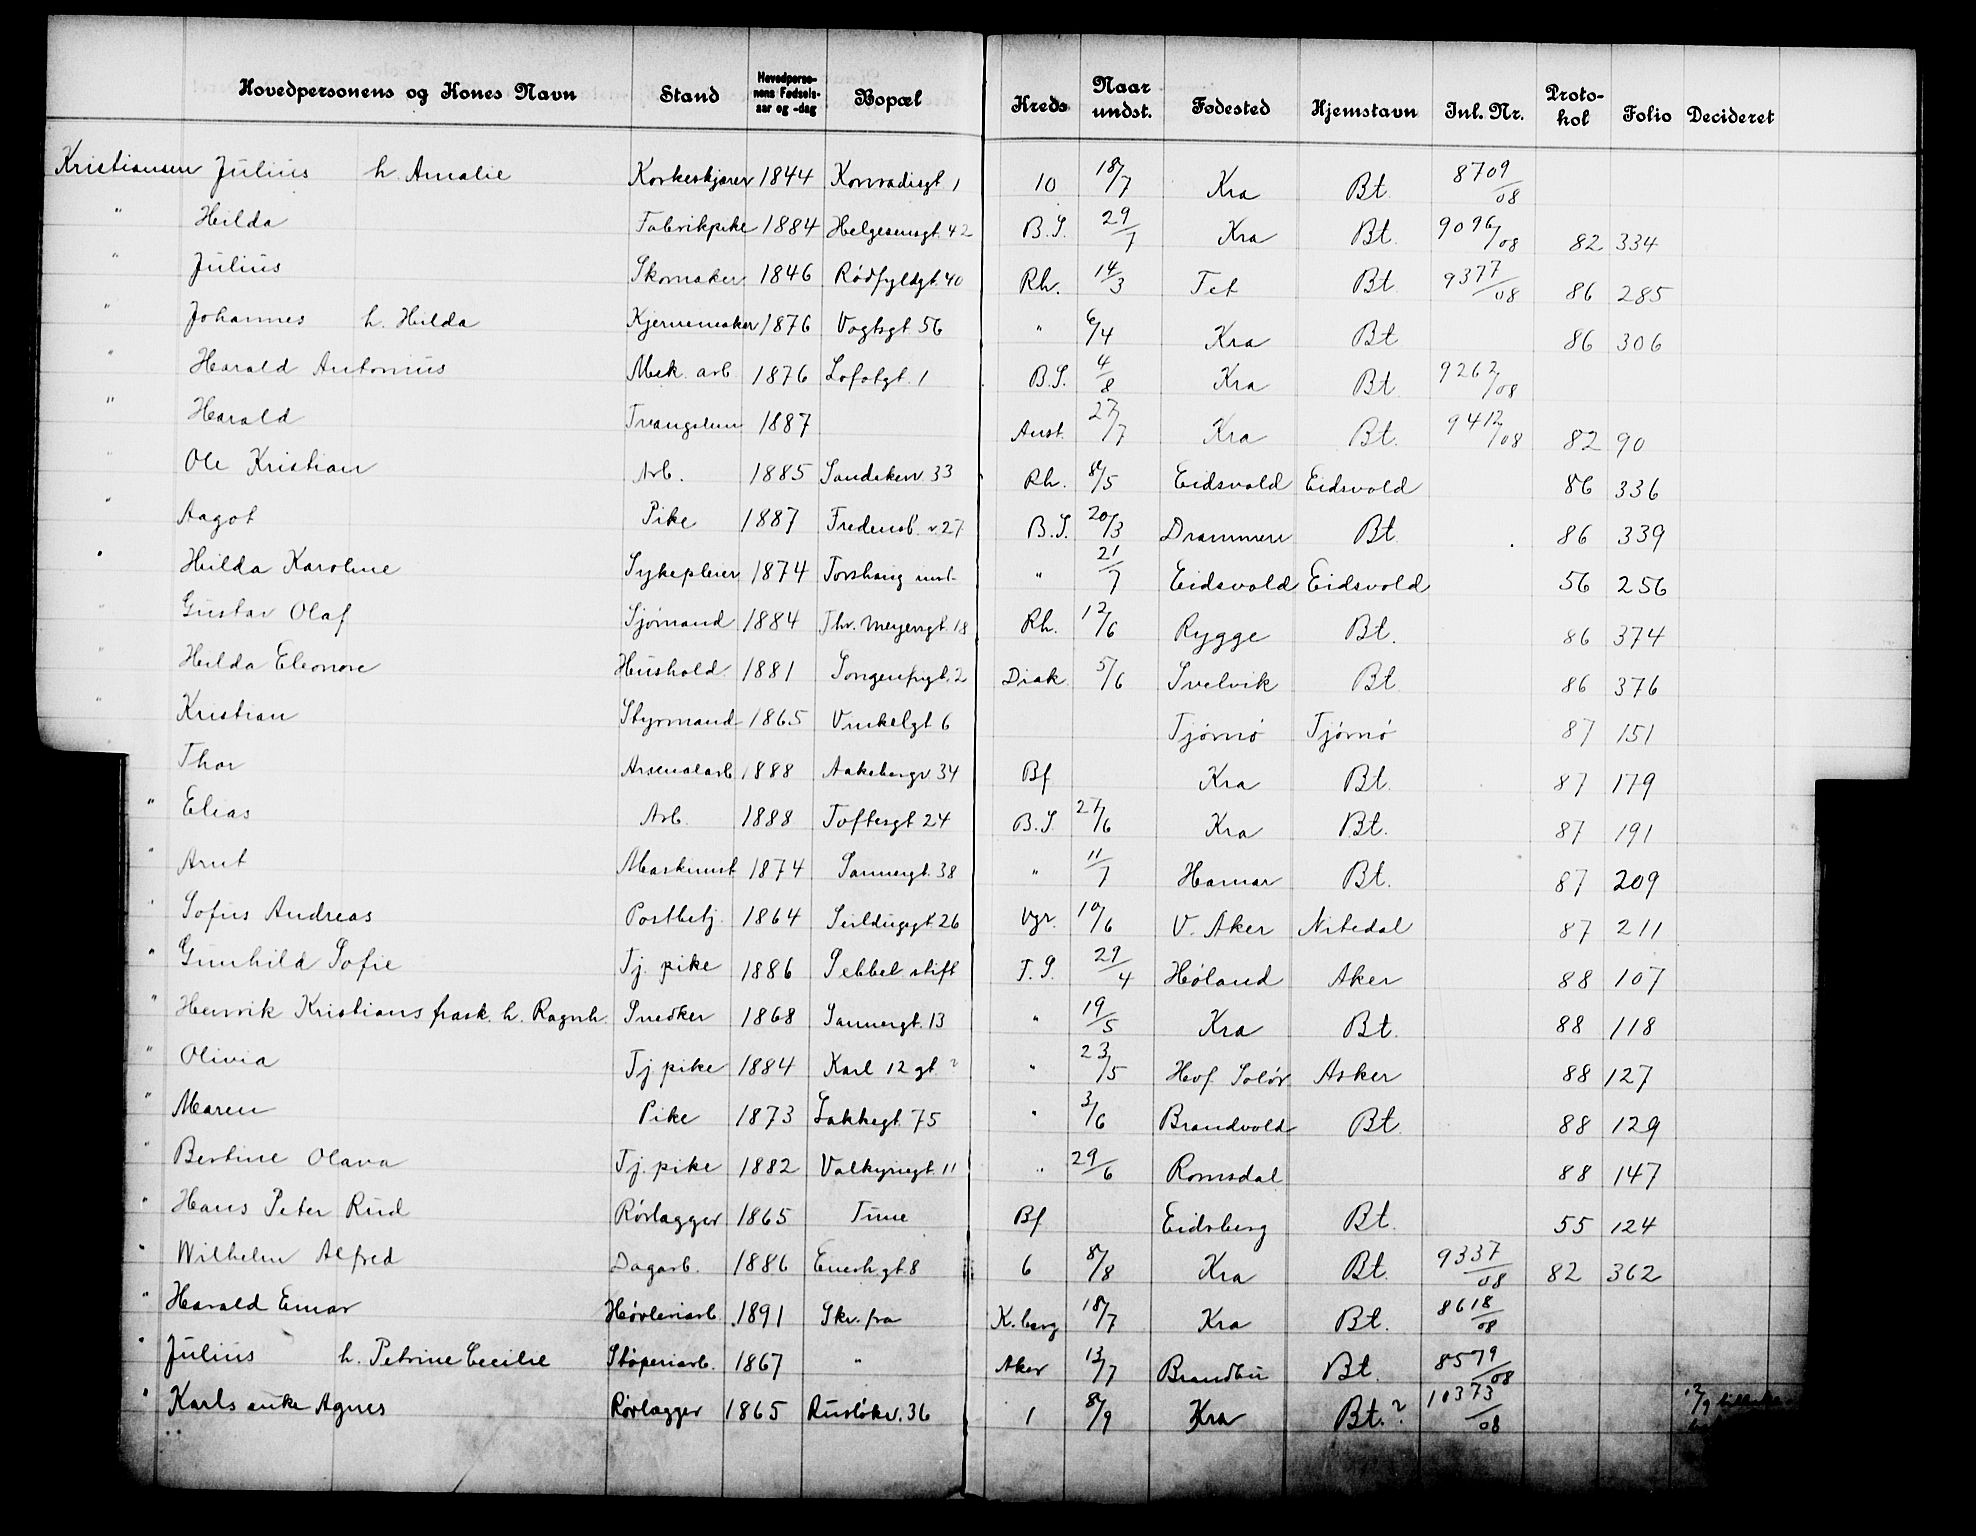 Hovedpersonens og Kones Navn Stand Hovedpersonens Fødselsaar og -dag Bopæl Kreds Naar undst. Fødested Hjemstavn Inl. Nr. Protokol Folio Decideret
Kristiansen Julius h. Amalie Korkeskjærer 1844 Konradisgt 1 10 18/7 Kra Bt 8709/08
" Hilda Fabrikpike 1884 Helgesensgt. 42 B.S. 29/7 Kra Bt. 9096/08 82 334
" Julius Skomaker 1846 Rødfyldgt. 40 Rh. 14/3 Tet Bt. 9377/08 86 285
" Johannes h. Hilda Kjernemaker 1876 Vogtsgt 56 " 6/4 Kra Bt 86 306
" Harald Antonius Mek. arb. 1876 Lofotgt. 1 B.S. 4/8 Kra Bt. 9262/08
" Harald Tvangslem 1887 Anst. 27/7 Kra Bt. 9412/08 82 90
" Ole Kristian Arb. 1885 Sandakerv. 33 Rh. 8/5 Eidsvold Eidsvold 86 336
" Aagot Pike 1887 Fredensb. v 27 B.S. 20/3 Drammen Bt. 86 339
" Hilda Karoline Sykepleier 1874 Torshaug inst. " 21/7 Eidsvold Eidsvold 56 256
" Gustav Olaf Sjømand 1884 Thv. Meyersgt. 18 Rh. 12/6 Rygge Bt. 86 374
" Hilda Eleonore Hushold. 1881 Sorgenfrigt. 2 Diak. 5/6 Svelvik Bt 86 376
" Kristian Styrmand 1865 Vinkelgt 6 Tjømø Tjømø 87 151
Thor Arsenalarb. 1888 Aakebergv 34 Bf Kra Bt. 87 179
" Elias Arb. 1888 Toftesgt 24 B.S. 27/6 Kra Bt. 87 191
" Arnt Maskinist 1874 Sannergt. 38 " 11/7 Hamar Bt. 87 209
" Sofus Andreas Postbetj. 1864 Seildugsgt. 26 Vgr. 10/6 V. Aker Nitedal 87 211
" Gunhild Sofie Tj. pike 1886 Sebbel stift T.S. 29/4 Høland Aker 88 107
" Henrik Kristians frask. h. Ragnh. Snedker 1868 Sannergt. 13 " 19/5 Kra Bt. 88 118
" Olivia Tj. pike 1884 Karl 12 gt ? " 23/5 Hof Solør Asker 88 127
" Maren Pike 1873 Lakkegt 75 " 3/6 Brandvold Bt. 88 129
" Bertine Olava Tj. pike 1882 Valkyriegt. 11 " 29/6 Romsdal 88 147
" Hans Peter Rud Rørlægger 1865 Tune Bf Eidsberg Bt. 55 124
" Wilhelm Alfred Dagarb. 1886 Enerh. gt 8 6 8/8 Kra Bt. 9337/08 82 362
" Harald Einar Høvleriarb. 1891 Skr. fra K. berg 18/7 Kra Bt. 8618/08
" Julius h. Petrine Cecilie Støperiarb. 1867 " Aker 13/7 Brandbu Bt. 8579/08
" Karls enke Agnes Rørlægger 1865 Ruseløkv. 36 1 8/9 Kra Bt. ? 10373/08 12/9